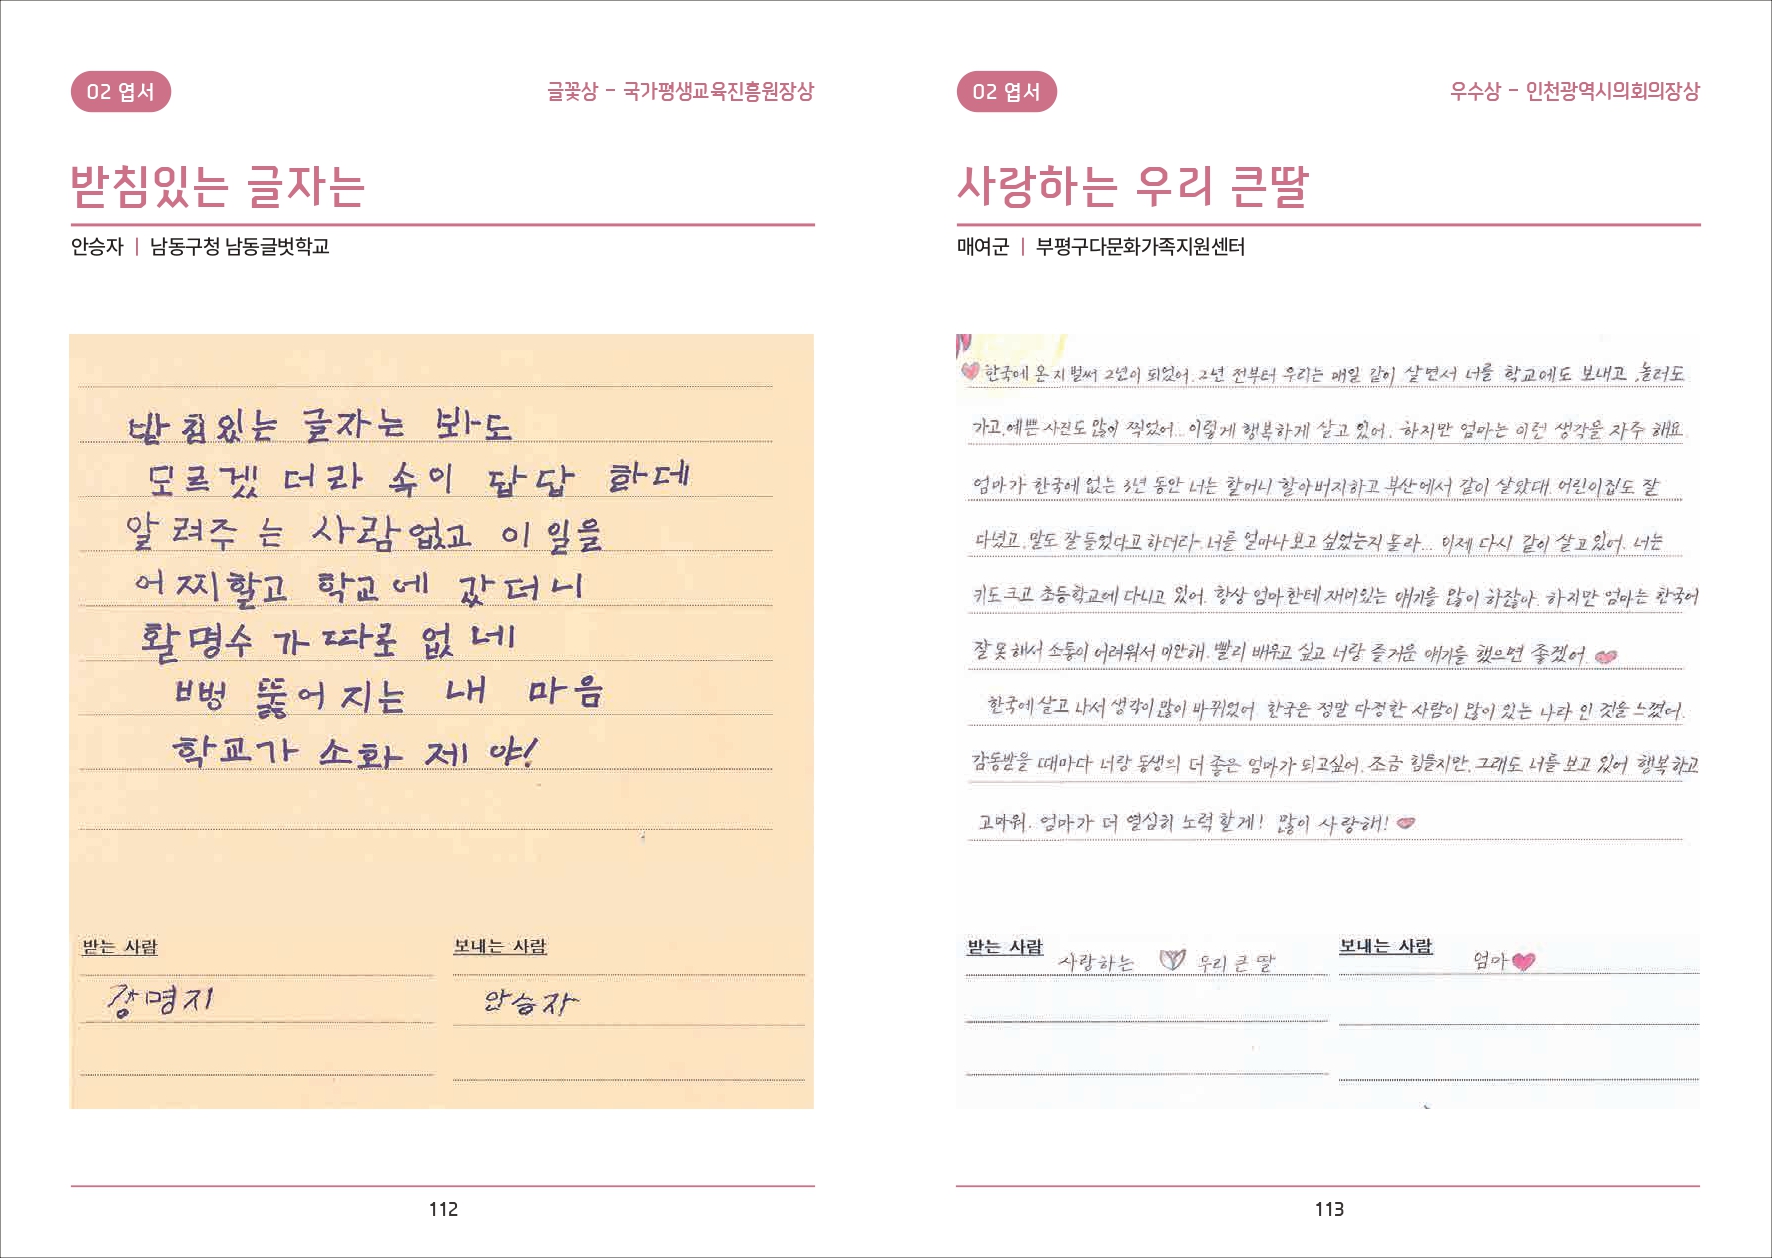 02 엽서
글꽃상 - 국가평생교육진흥원장상
받침있는 글자는
안승자 | 남동구청 남동글벗학교
받 침 있는 글자는 봐도
모르겠 더라 속이 답답 화데
알 려주 는 사람 없고 이 일을
어 찌 할고 학교에 갔더니
활명수 가 따로 없 네
뻥 뚫어 지는 내 마음
학교가 소화 제 야!
받는 사람
강명지
보내는 사람
안승자
112
02 엽서
우수상 - 인천광역시의회의장상
사랑하는 우리 큰딸
매여군 | 부평구다문화가족지원센터
한국에 온 지 벌써 2년이 되었어. 2년 전부터 우리는 매일 같이 살면서 너를 학교에도 보내고, 놀러도
가고, 예쁜 사진도 많이 찍었어... 이렇게 행복하게 살고 있어. 하지만 엄마는 이런 생각을 자주 해요.
엄마가 한국에 없는 3년 동안 너는 할머니 할아버지하고 부산에서 같이 살았대. 어린이집도 잘
다녔고, 말도 잘 들었다고 하더라. 너를 얼마나 보고 싶었는지 몰라... 이제 다시 같이 살고 있어. 너는
키도 크고 초등학교에 다니고 있어. 항상 엄마한테 재미있는 얘기를 많이 하잖아. 하지만 엄마는 한국어
잘 못 해서 소통이 어려워서 미안해. 빨리 배우고 싶고 너랑 즐거운 얘기를 했으면 좋겠어.
한국에 살고 나서 생각이 많이 바뀌었어. 한국은 정말 다정한 사람이 많이 있는 나라 인 것을 느꼈어.
감동받을 때마다 너랑 동생의 더 좋은 엄마가 되고싶어. 조금 힘들지만, 그래도 너를 보고 있어 행복하고
고마워. 엄마가 더 열심히 노력 할게! 많이 사랑해!
받는 사람
사랑하는 우리 큰 딸
보내는 사람
엄마
113